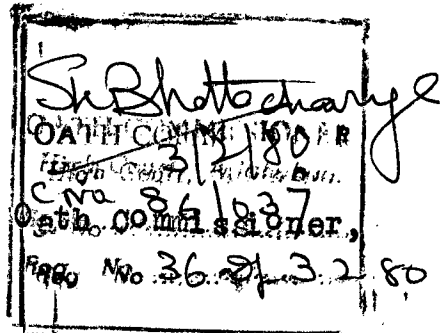 Sk Bhattacharye
OATH COMMISSIONER
3/2/80
High Court,
C No 86/037
Oath commissioner,
Reg. No 36 of 3.2.80